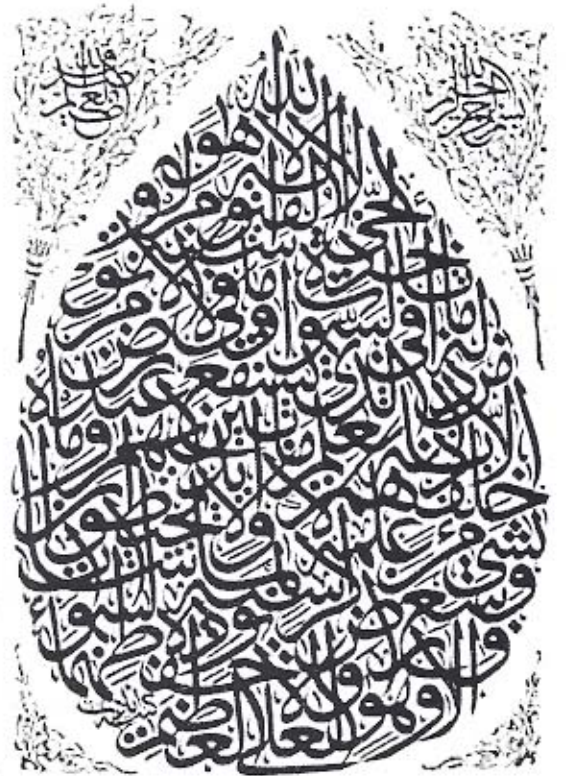 بسم الله الرحمن الرحيم
صدق الله العظيم
الله
لا اله الا هو
الحي القيوم لا
تاخذه سنة ولا نوم
له ما في السموات وما في الارض
من ذا الذي يشفع عنده
الا باذنه يعلم ما بين ايديهم وما
خلفهم ولا يحيطون
بشيء من علمه الا بما شاء
وسع كرسيه السموات
والارض ولا يؤده حفظهما
وهو العلي العظيم